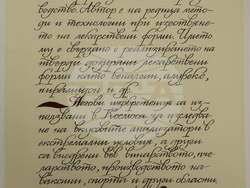 водство. Автор е на редица мето-
ди и технологии при изготвяне-
то на лекарствени форми. Името
му е свързано с реализирането на
твърди дозирани лекарствени
форми като беналгин, алмрекс,
пирамидон и др.
Негови изобретения са из-
ползвани в Космоса за изследва-
не на вкусовите анализатори в
екстремални условия, а други
са внедрени във винарството, пче-
ларството, производството на
ваксини, спорта и други области.